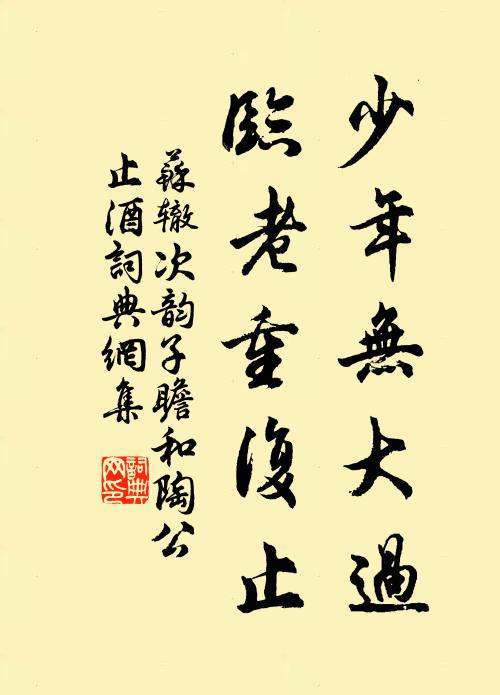 少年無大過
臨老重復止
蘇辙次韵子瞻和陶公
止酒詞典網集
詞典
网印